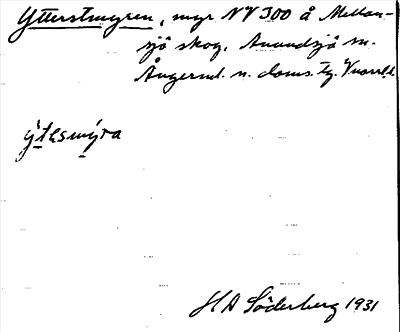 Ytterstmyren, myr NV 300 å Mellan-
sjö skog, Anundsjö sn.
Ångerml. n. doms. tg. Vnorrl. l.
ýtesmýra
H A Söderberg 1931